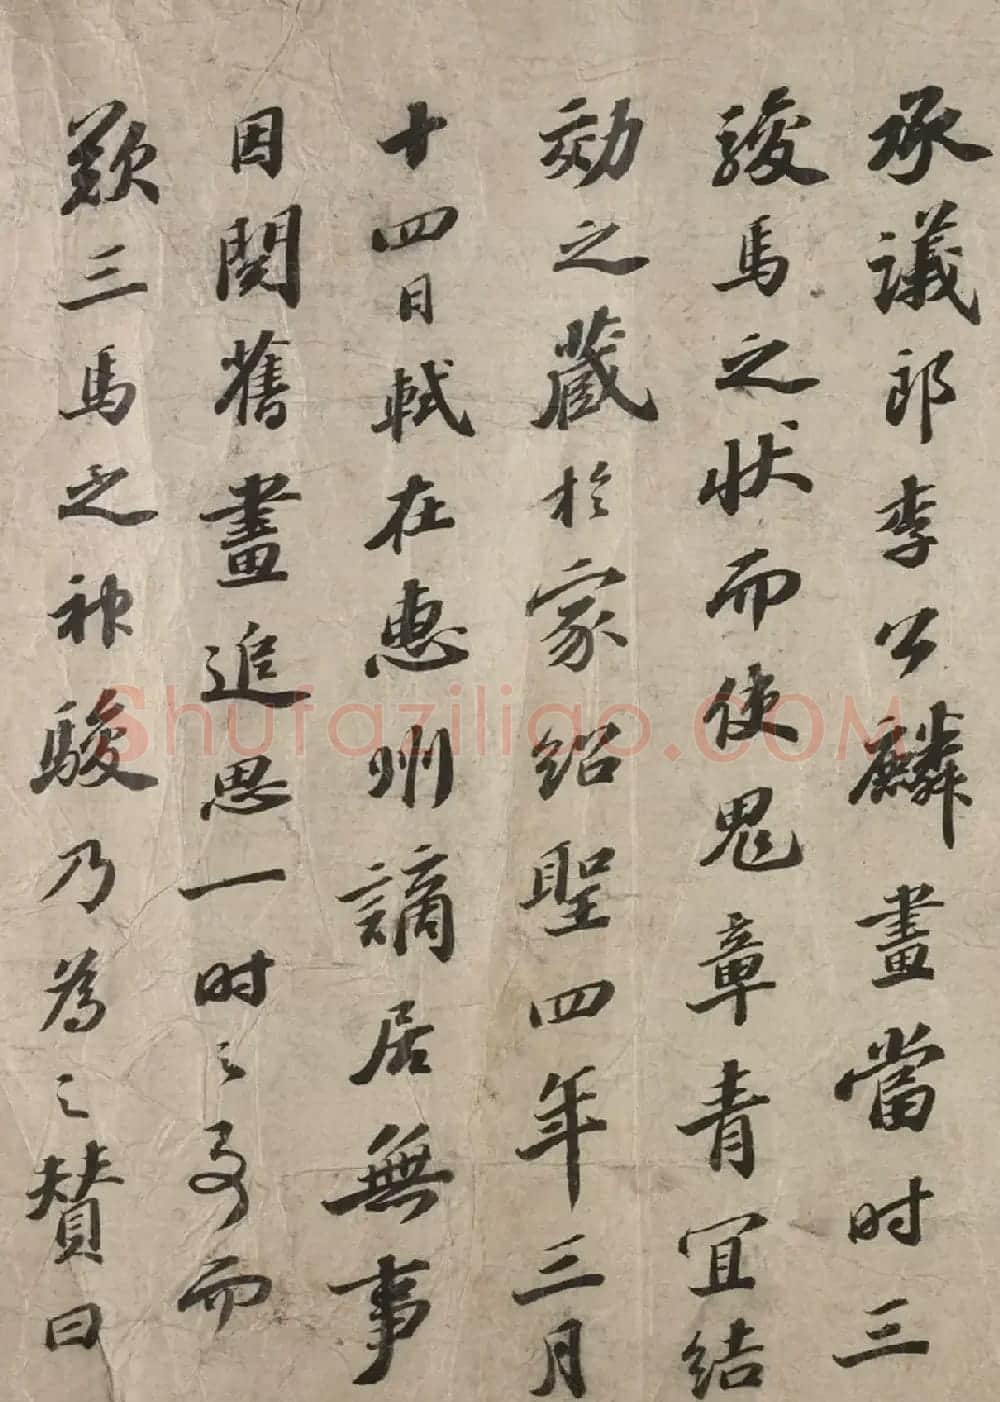 承議郎李公麟畫當时三
駿馬之状而使鬼章青冝結
効之蔵於家紹聖四年三月
十四日軾在惠州謫居無事
因閲舊畫追思一时之事而
歎三馬之神駿乃為之賛曰
Shufaziliao.COM